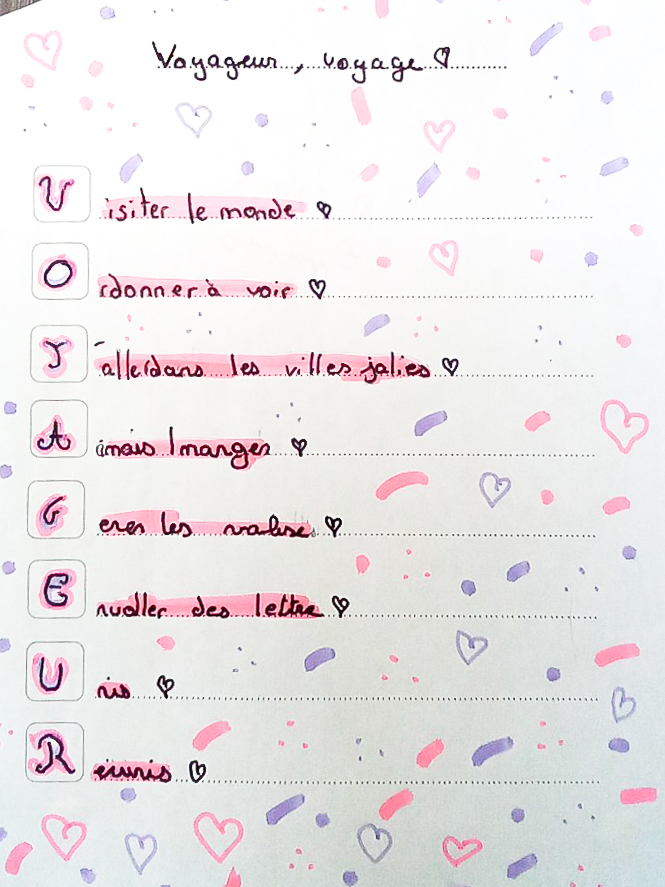 Voyageur, voyage
V isiter le monde
O rdonner à voir
Y aller dans les villes jolies
A mais manger
G erer les valise
E nvoller des lettre
U nis
R éunis